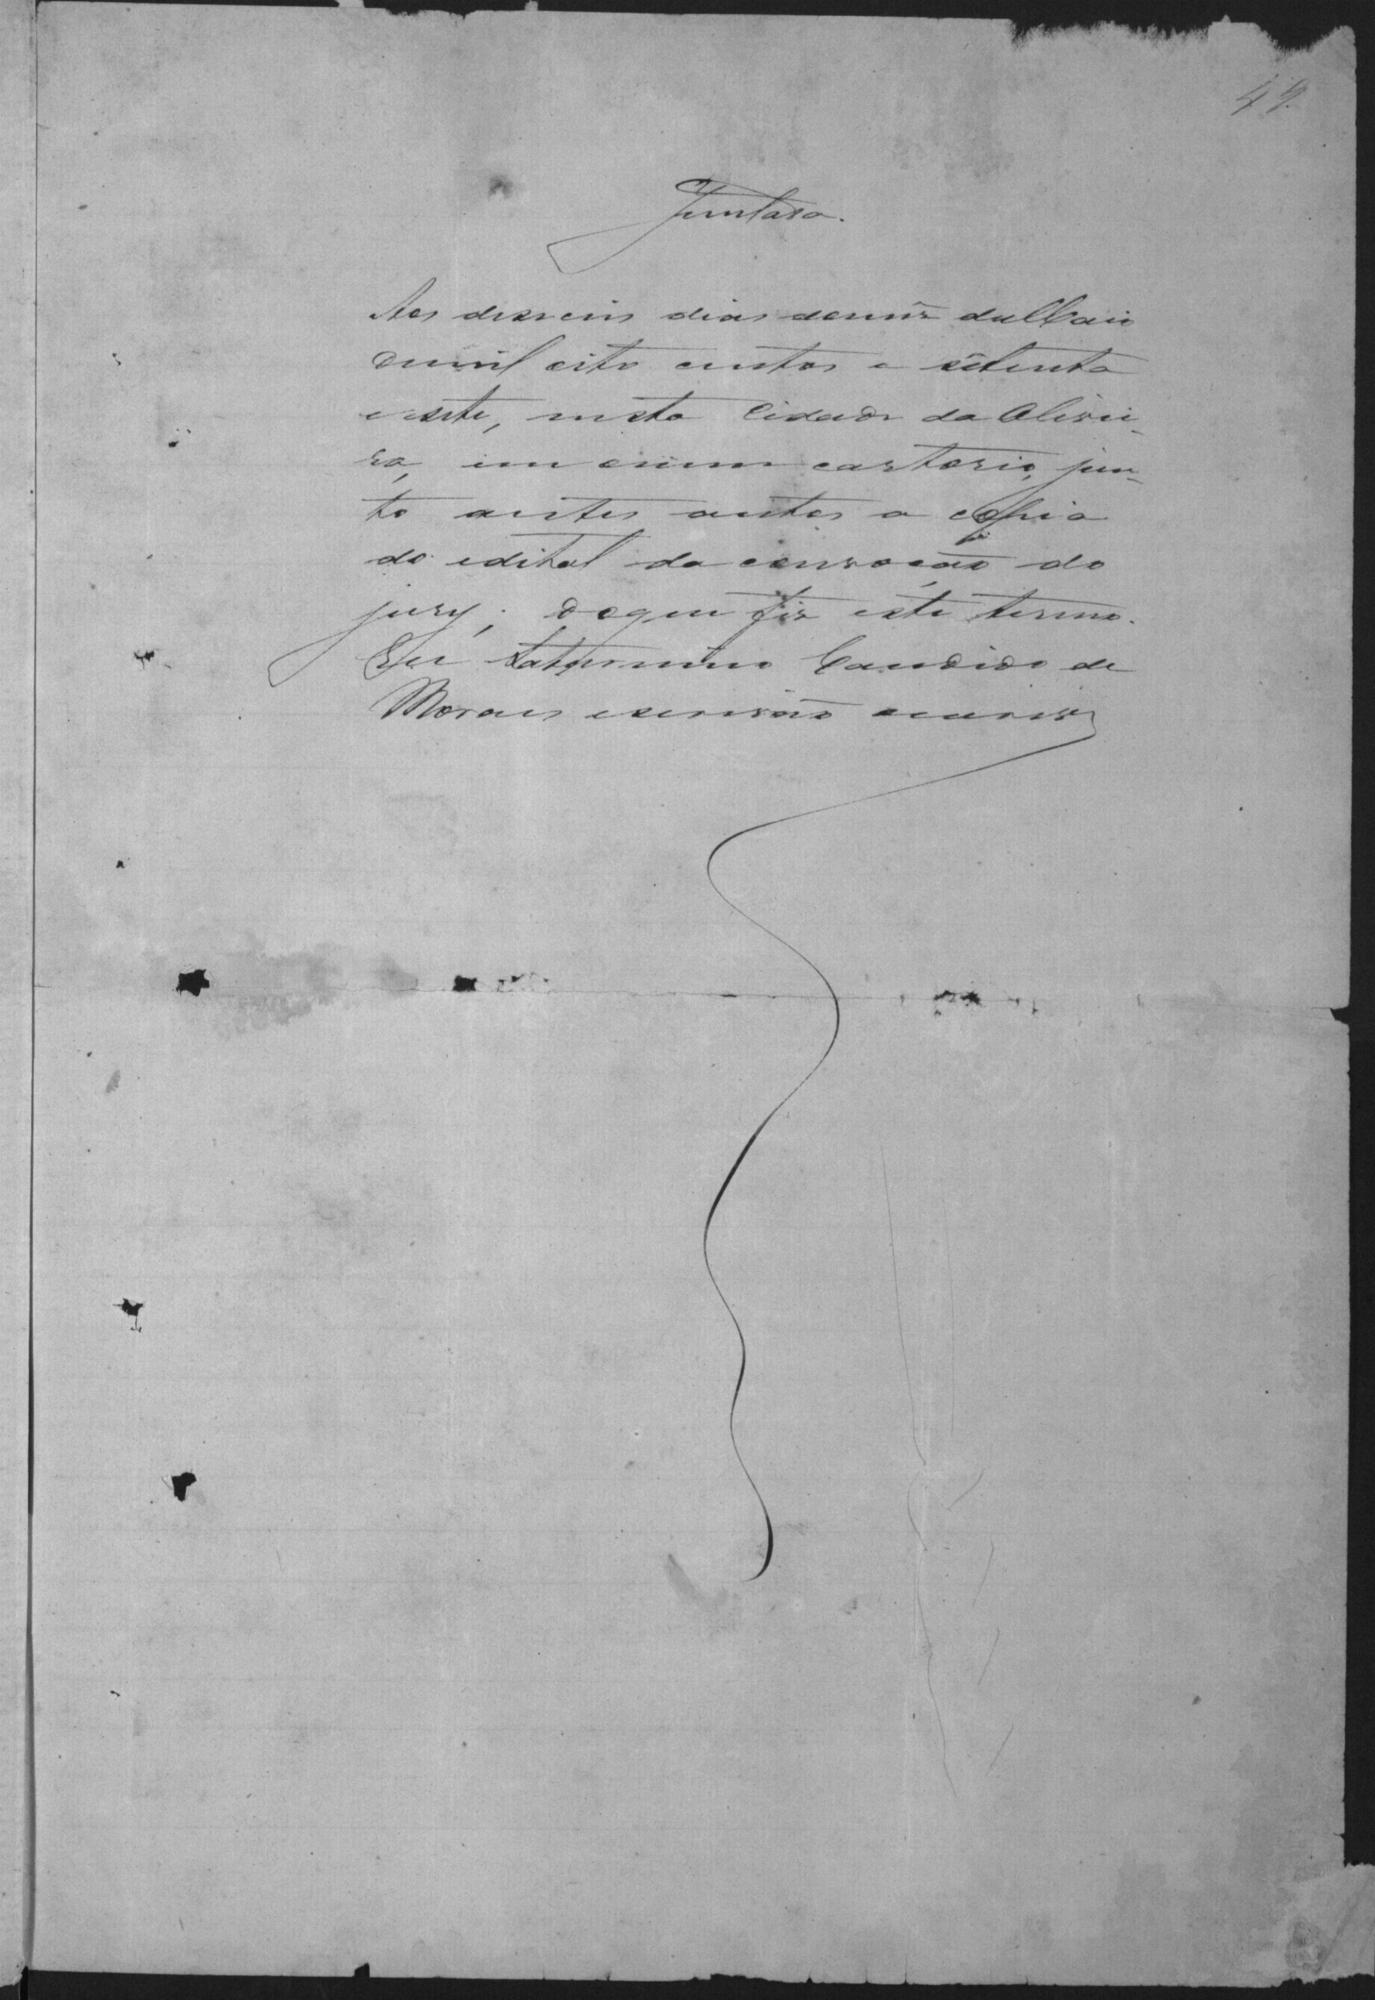 Juntada.
Aos deseseis dias do mez de Maio
de mil oito centos e setenta
e sete, nesta Cidade da Olivei-
ra, em o meu cartorio, jun-
to a estes autos a copia
do edital da convocação do
jury; do que fiz este termo.
Eu Saturnino Candido de
Moraes escrivão escrevi